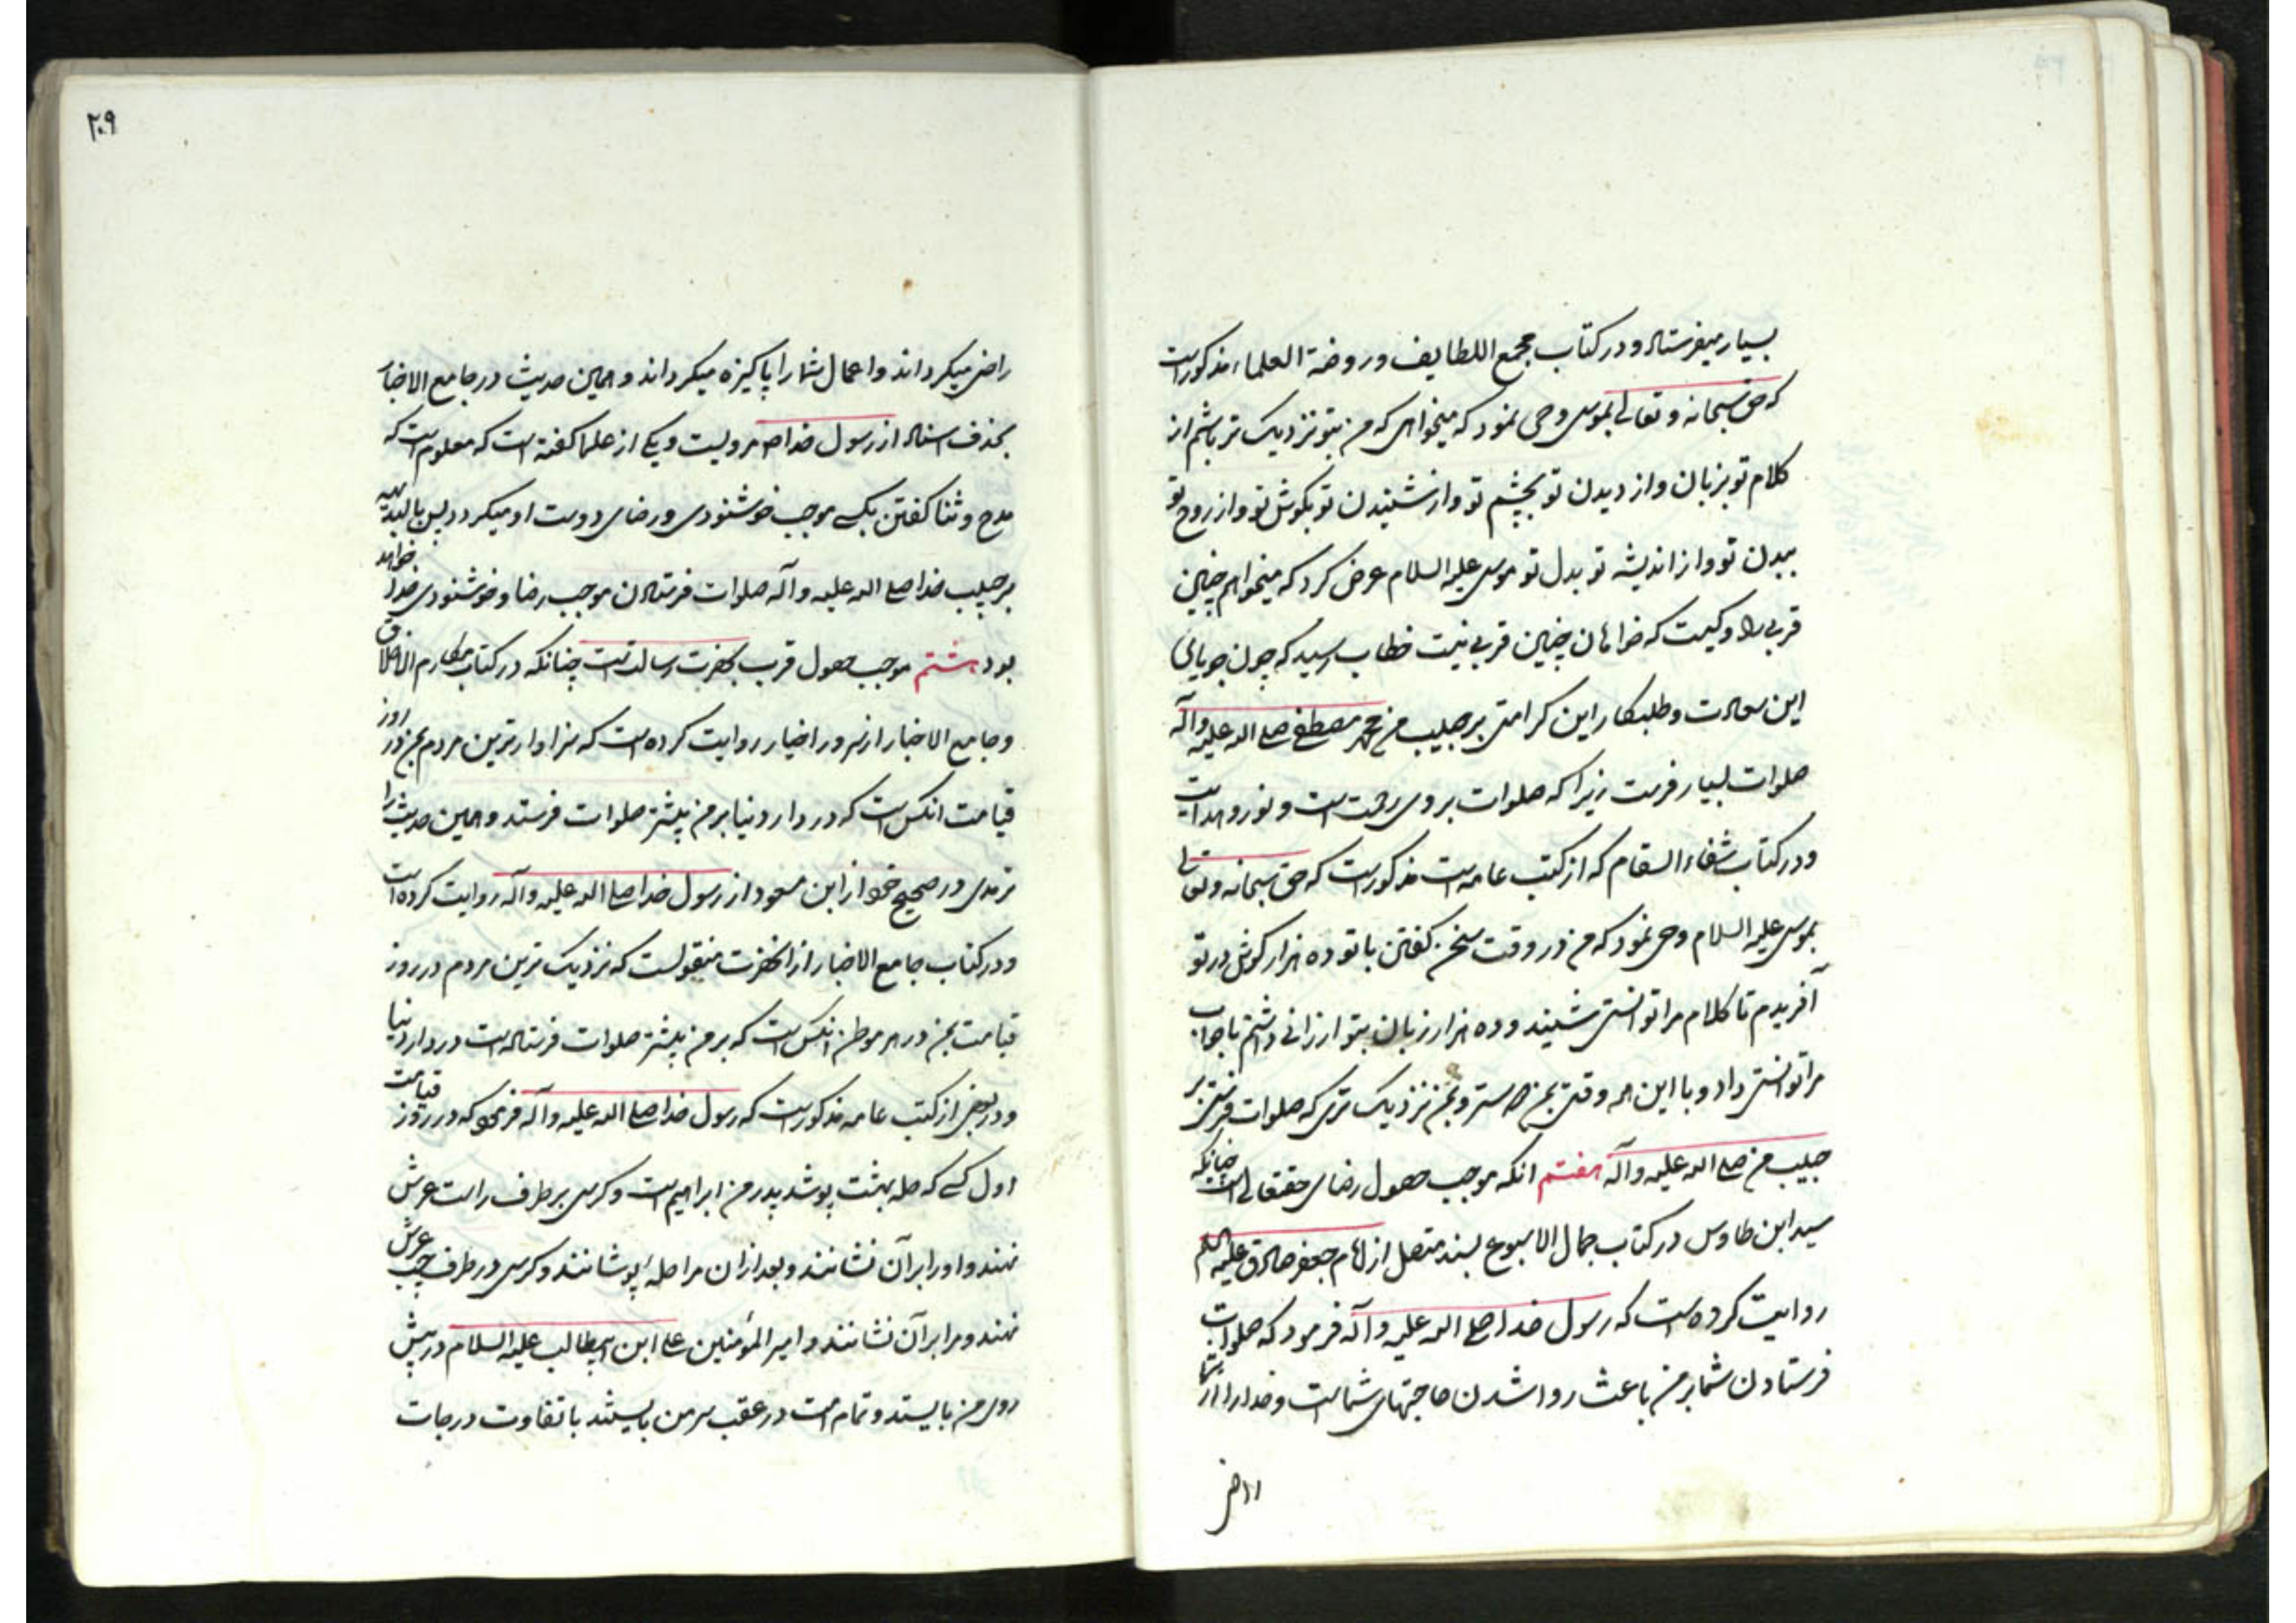 بسیار میفرستاد و در کتاب مجمع اللطایف و روضة العلماء مذکورست
که حق سبحانه و تعالی بموسی وحی نمود که میخواهی که من بتو نزدیک تر باشم از
کلام تو بزبان و از دیدن تو بچشم تو و از شنیدن تو بگوش تو و از روح تو
ببدن تو و از اندیشه تو بدل تو موسی علیه السلام عرض کرد که میخواهم چنین
قربی را و کیست که خواهان چنین قربی نیست خطاب رسید که چون جویای
این سعادت و طلبکار این کرامتی بر حبیب من محمد مصطفی صلی الله علیه وآله
صلوات بسیار فرست زیرا که صلوات بر وی رحمت است و نور و هدایت
و در کتاب شفاء السقام که از کتب عامه است مذکورست که حق سبحانه و تعالی
بموسی علیه السلام وحی نمود که من در وقت سخن گفتن با تو ده هزار گوش در تو
آفریدم تا کلام مرا توانستی شنید و ده هزار زبان بتو ارزانی داشتم تا جواب
مرا توانستی داد و با این همه وقتی بمن دوستر و بمن نزدیک تری که صلوات فرستی بر
حبیب من صلی الله علیه وآله هفتم انکه موجب حصول رضای حقتعالی است چنانکه
سید ابن طاوس در کتاب جمال الاسبوع بسند متصل از امام جعفر صادق علیه السلام
روایت کرده است که رسول خدا صلی الله علیه وآله فرمود که صلوات
فرستادن شما بر من باعث روا شدن حاجتهای شماست و خدا را از شما
راضی
۲۰۹
راضی میکرداند و اعمال شما را پاکیزه میکرداند و همین حدیث در جامع الاخبار
بحذف اسناد از رسول خدا ص مرویست و یکی از علما گفته است که معلوم است که
مدح و ثنا گفتن بکسی موجب خوشنودی و رضای دوست او میکردد پس بالبدیهه
بر حبیب خدا صلی الله علیه وآله صلوات فرستادن موجب رضا و خوشنودی خدا خواهد
بود هشتم موجب حصول قرب بحضرت رسالت است چنانکه در کتاب مکارم الاخلاق
و جامع الاخبار از سرور اخیار روایت کرده است که سزاوارترین مردم بمن در روز
قیامت انکس است که در دار دنیا بر من بیشتر صلوات فرستد و همین حدیث را
ترمدی در صحیح خود از ابن مسعود از رسول خدا صلی الله علیه وآله روایت کرده است
و در کتاب جامع الاخبار از انحضرت منقولست که نزدیک ترین مردم در روز
قیامت بمن در هر موطن انکس است که بر من بیشتر صلوات فرستاده است در دار دنیا
و در بعضی از کتب عامه مذکورست که رسول خدا صلی الله علیه وآله فرمود که در روز قیامت
اول کسی که حله بهشت پوشد پدر من ابراهیم است و کرسی بر طرف راست عرش
نهند و او را بر آن نشانند و بعد از ان مرا حله بپوشانند و کرسی در طرف چپ عرش
نهند و مرا بر آن نشانند و امیر المؤمنین علی ابن ابیطالب علیه السلام در پیش
روی من بایستد و تمام امت در عقب سر من بایستند با تفاوت درجات